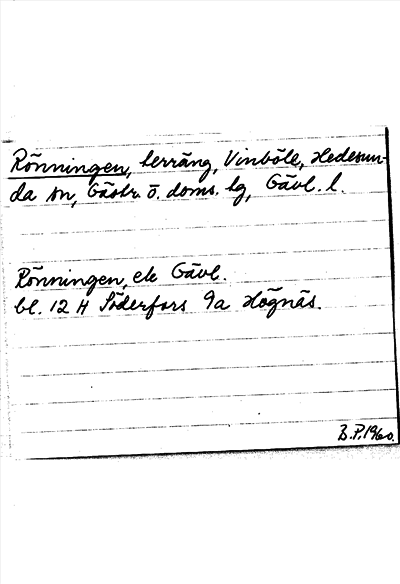 Rönningen, terräng, Vinböle, Hedesun-
da sn, Gästr. ö. doms. lg, Gävl. l.
Rönningen, ek Gävl.
bl. 12 H Söderfors 9a Högnäs.
B.P. 1960.